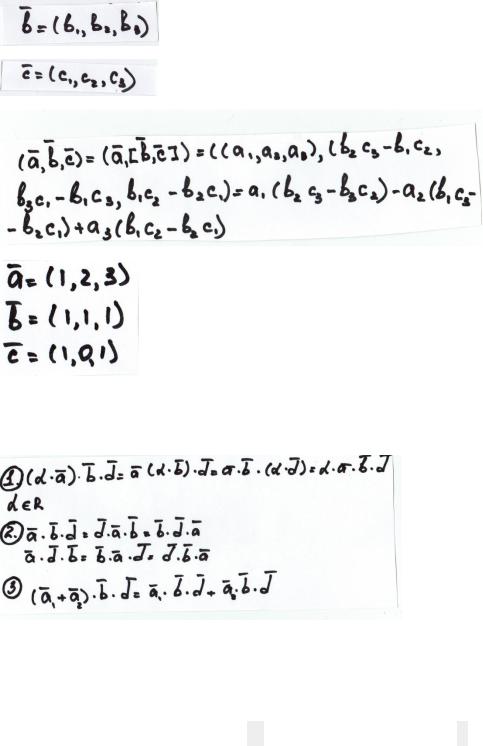 b̄ = (b₁, b₂, b₃)
c̄ = (c₁, c₂, c₃)
(ā, b̄, c̄) = (ā, [b̄, c̄]) = ((a₁, a₂, a₃), (b₂ c₃ - b₁ c₂,
b₃c₁ - b₁c₃, b₁c₂ - b₂c₁) = a₁ (b₂ c₃ - b₃c₂) - a₂ (b₁c₃ -
- b₂c₁) + a₃ (b₁c₂ - b₂ c₁)
ā = (1, 2, 3)
b̄ = (1, 1, 1)
c̄ = (1, 0, 1)
① (α · ā) · b̄ · d̄ = ā (α · b̄) · d̄ = ā · b̄ · (α · d̄) = α · ā · b̄ · d̄
α ∈ R
② ā · b̄ · d̄ = d̄ · ā · b̄ = b̄ · d̄ · ā
ā · d̄ · b̄ = b̄ · ā · d̄ = d̄ · b̄ · ā
③ (ā₁ + ā₂) · b̄ · d̄ = ā₁ · b̄ · d̄ + ā₂ · b̄ · d̄